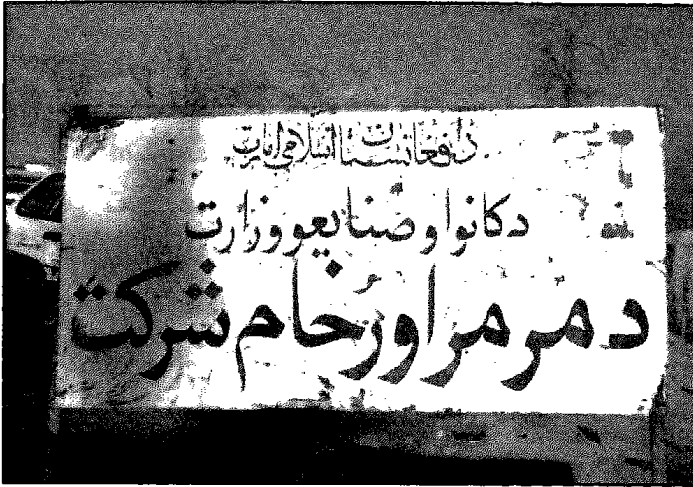 دافغانستان اسلامي امارت
دکانو او صنایعو وزارت
د مرمر او رخام شرکت